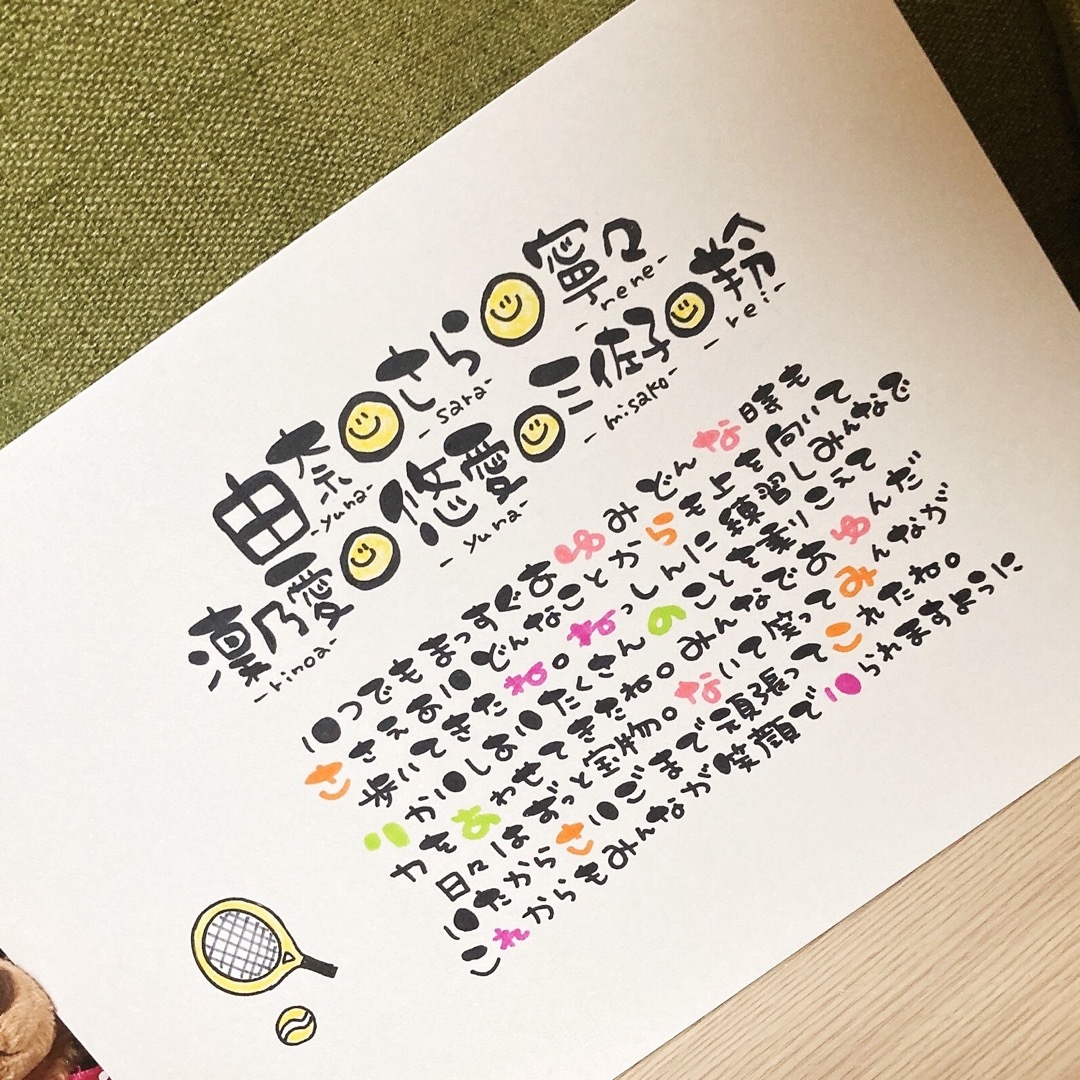 由奈 さら 寧々
-yuna- -sara- -nene-
凜乃愛 悠愛 三佐子
-rinoa- -yuna- -misako- -rei-
いつでもまっすぐあゆみどんな時も
ささえあいどんなことからも上を向いて
歩いてきたね。ねっしんに練習しみんなで
りかいしあいたくさんのことを乗りこえて
力をあわせてきたね。みんなであゆんだ
日々はずっと宝物。ないて笑ってみんなが
いたからさいごまで頑張ってこれたね。
これからもみんなが笑顔でいられますように